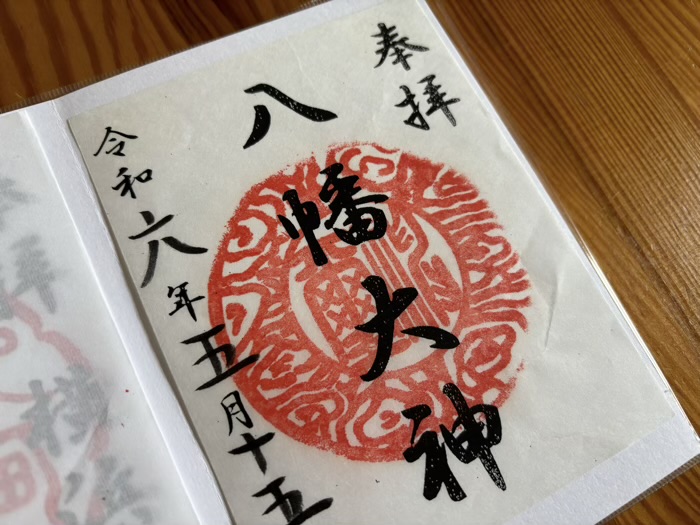 奉拝
八幡大神
令和六年五月十五